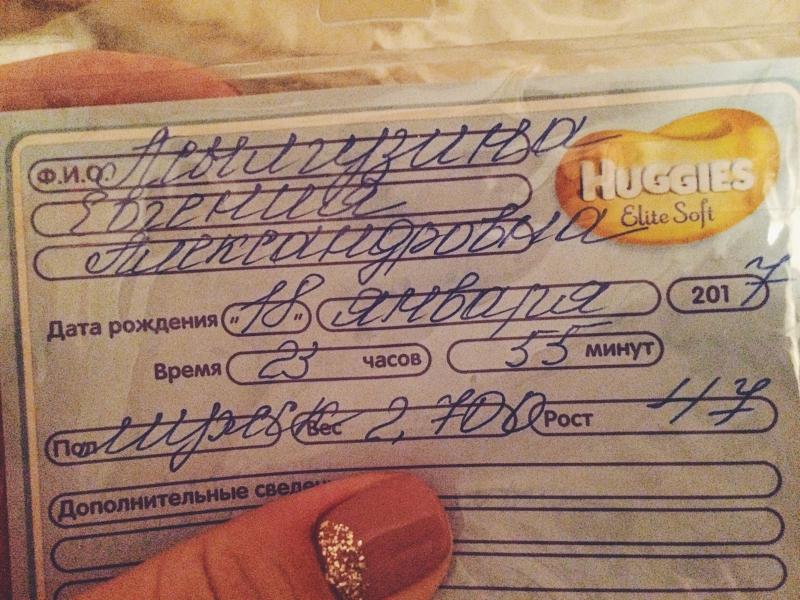 HUGGIES
Elite Soft
Ф.И.О.
Евгения
Александровна
Дата рождения „18„ января 2017
Время 23 часов 55 минут
Пол мужск Вес 2,700 Рост 47
Дополнительные